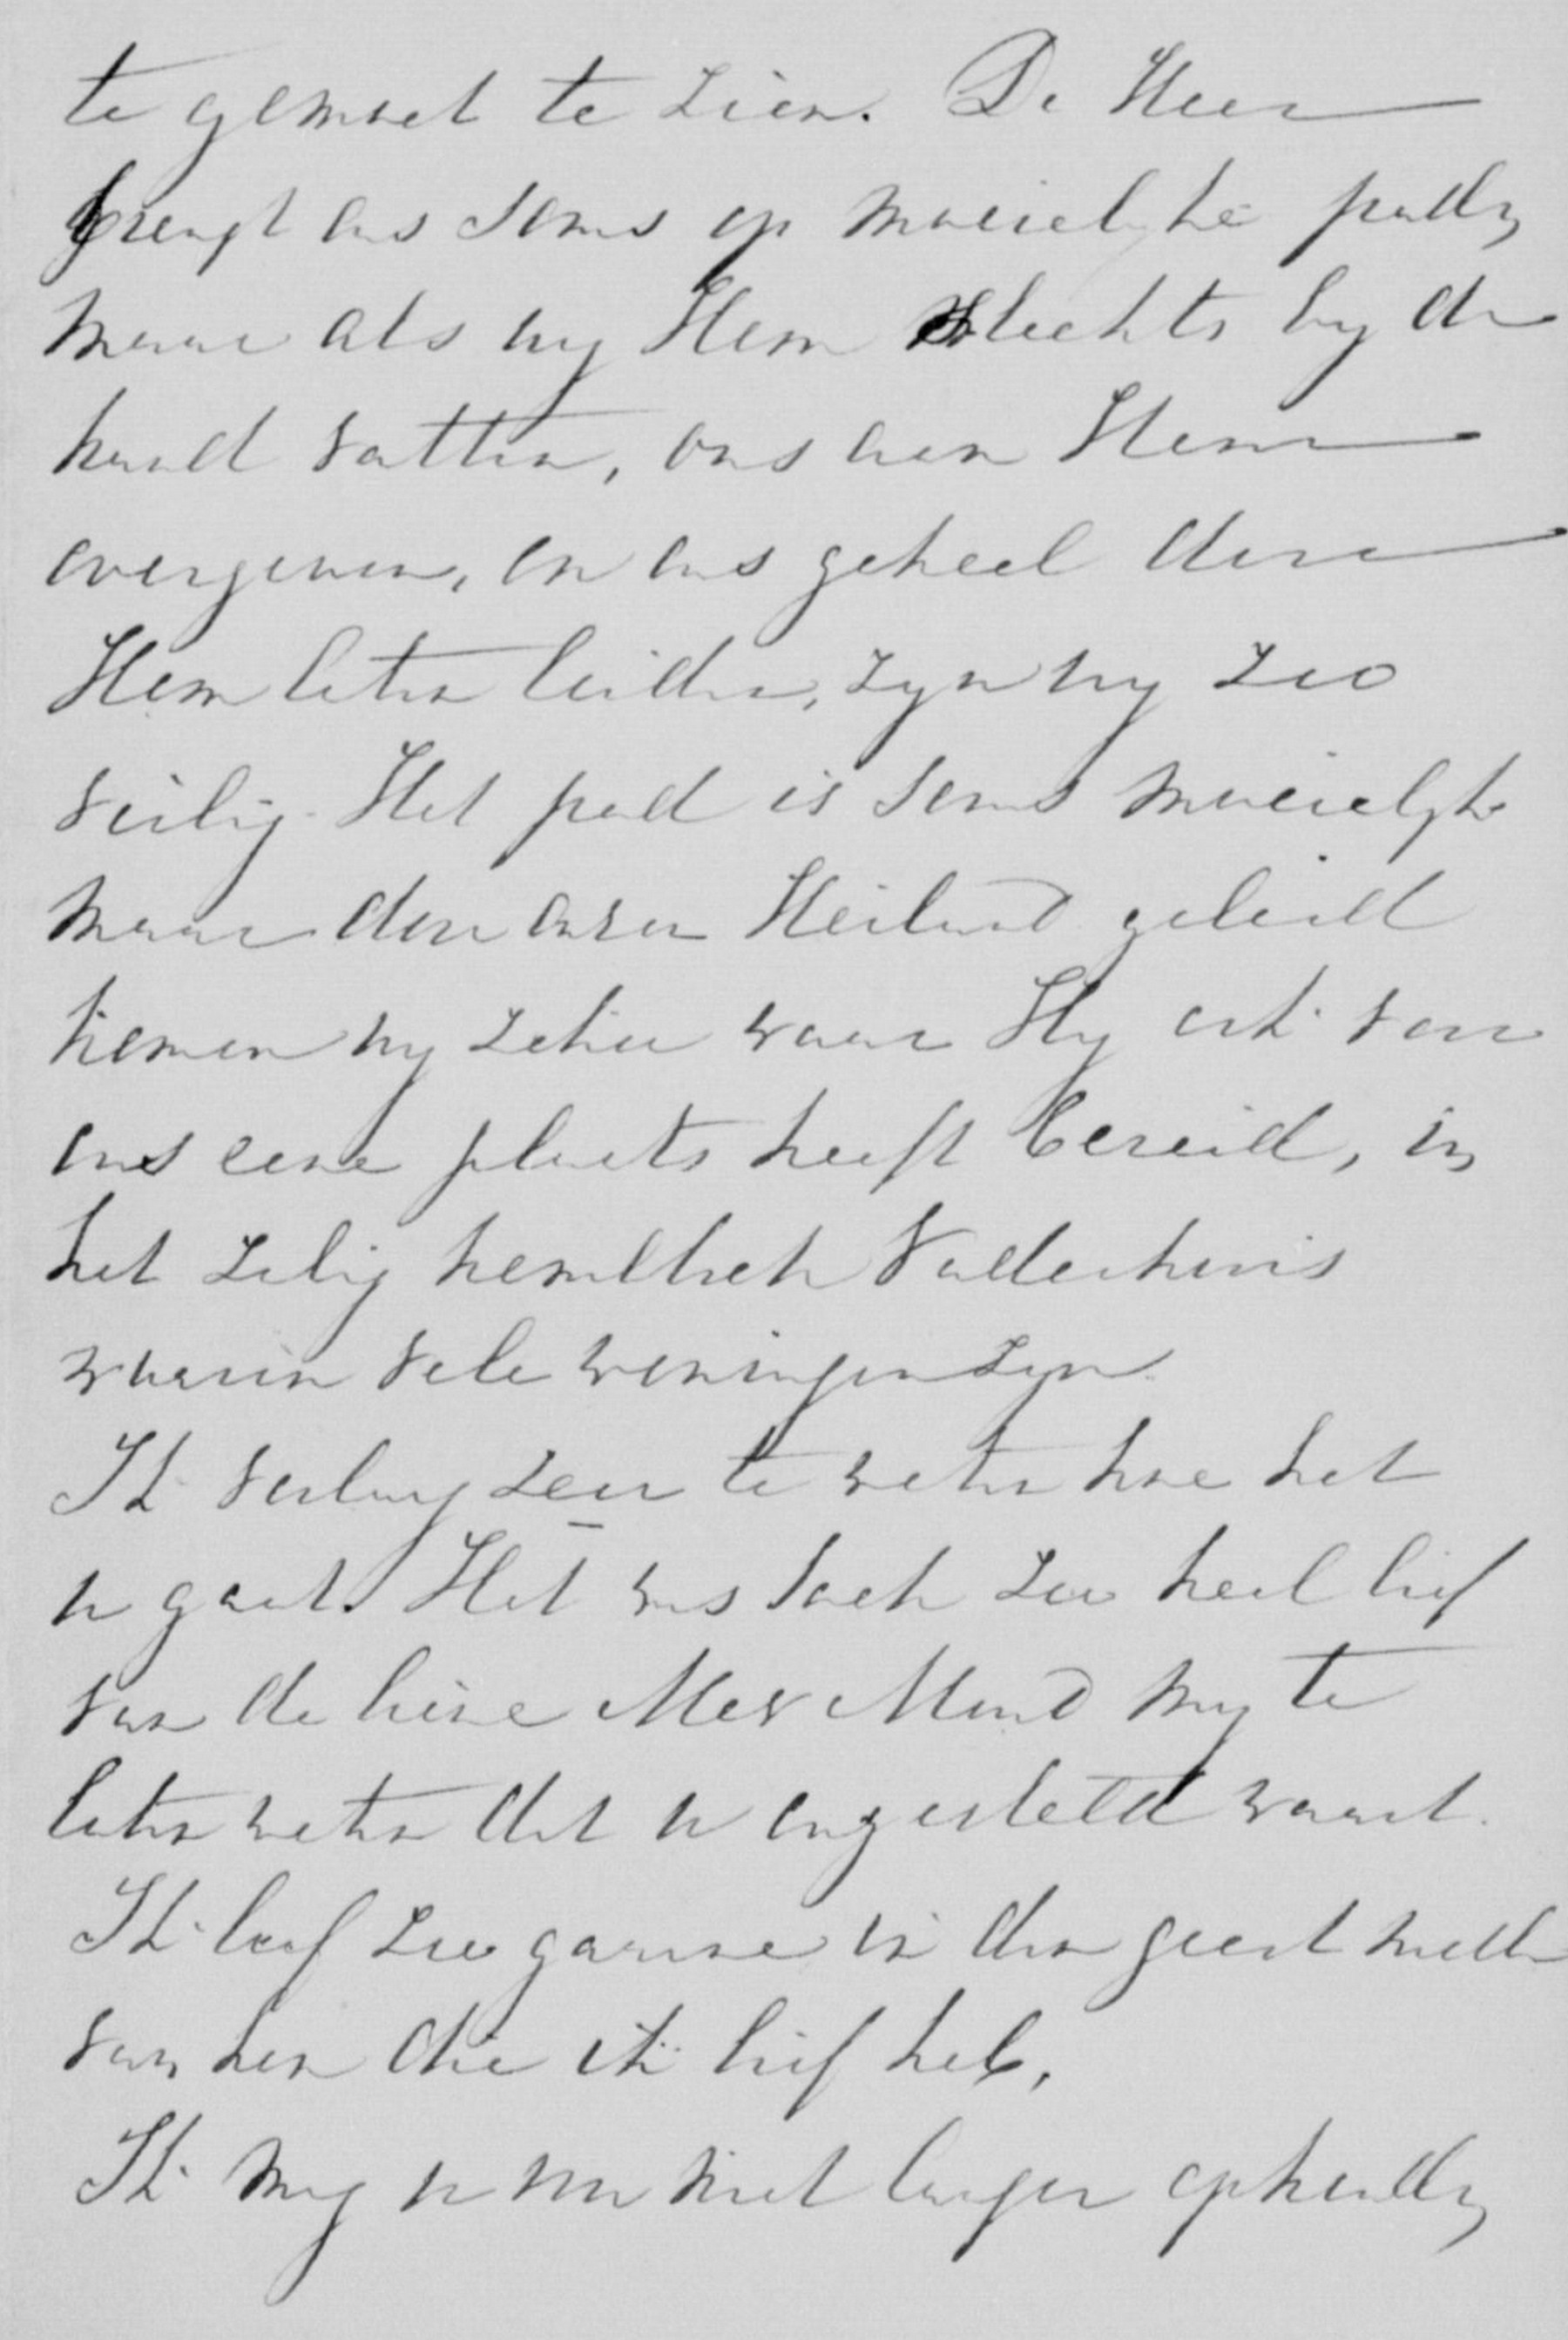 te gemoet te zien. De Heer
brengt ons soms op moeielyke paden
maar als wy Hem slechts by de
hand vatten, ons aan Hem
overgeven, en ons geheel door
Hem laten leiden, zyn wy zoo
veilig. Het pad is soms moeielyk
maar door onzen Heiland geleid
komen wy zeker waar Hy ook voor
ons eene plaats heeft bereid, in
het zalig hemelsch Vaderhuis
waarin vele woningen zyn.
Ik verlang zeer te weten hoe het
u gaat. Het was toch zoo heel lief
van de lieve Mev my te
laten weten dat u ongesteld waart.
Ik leef zoo gaarne in den geest mede
van hen die ik lief heb,
Ik mag u nu niet langer ophouden